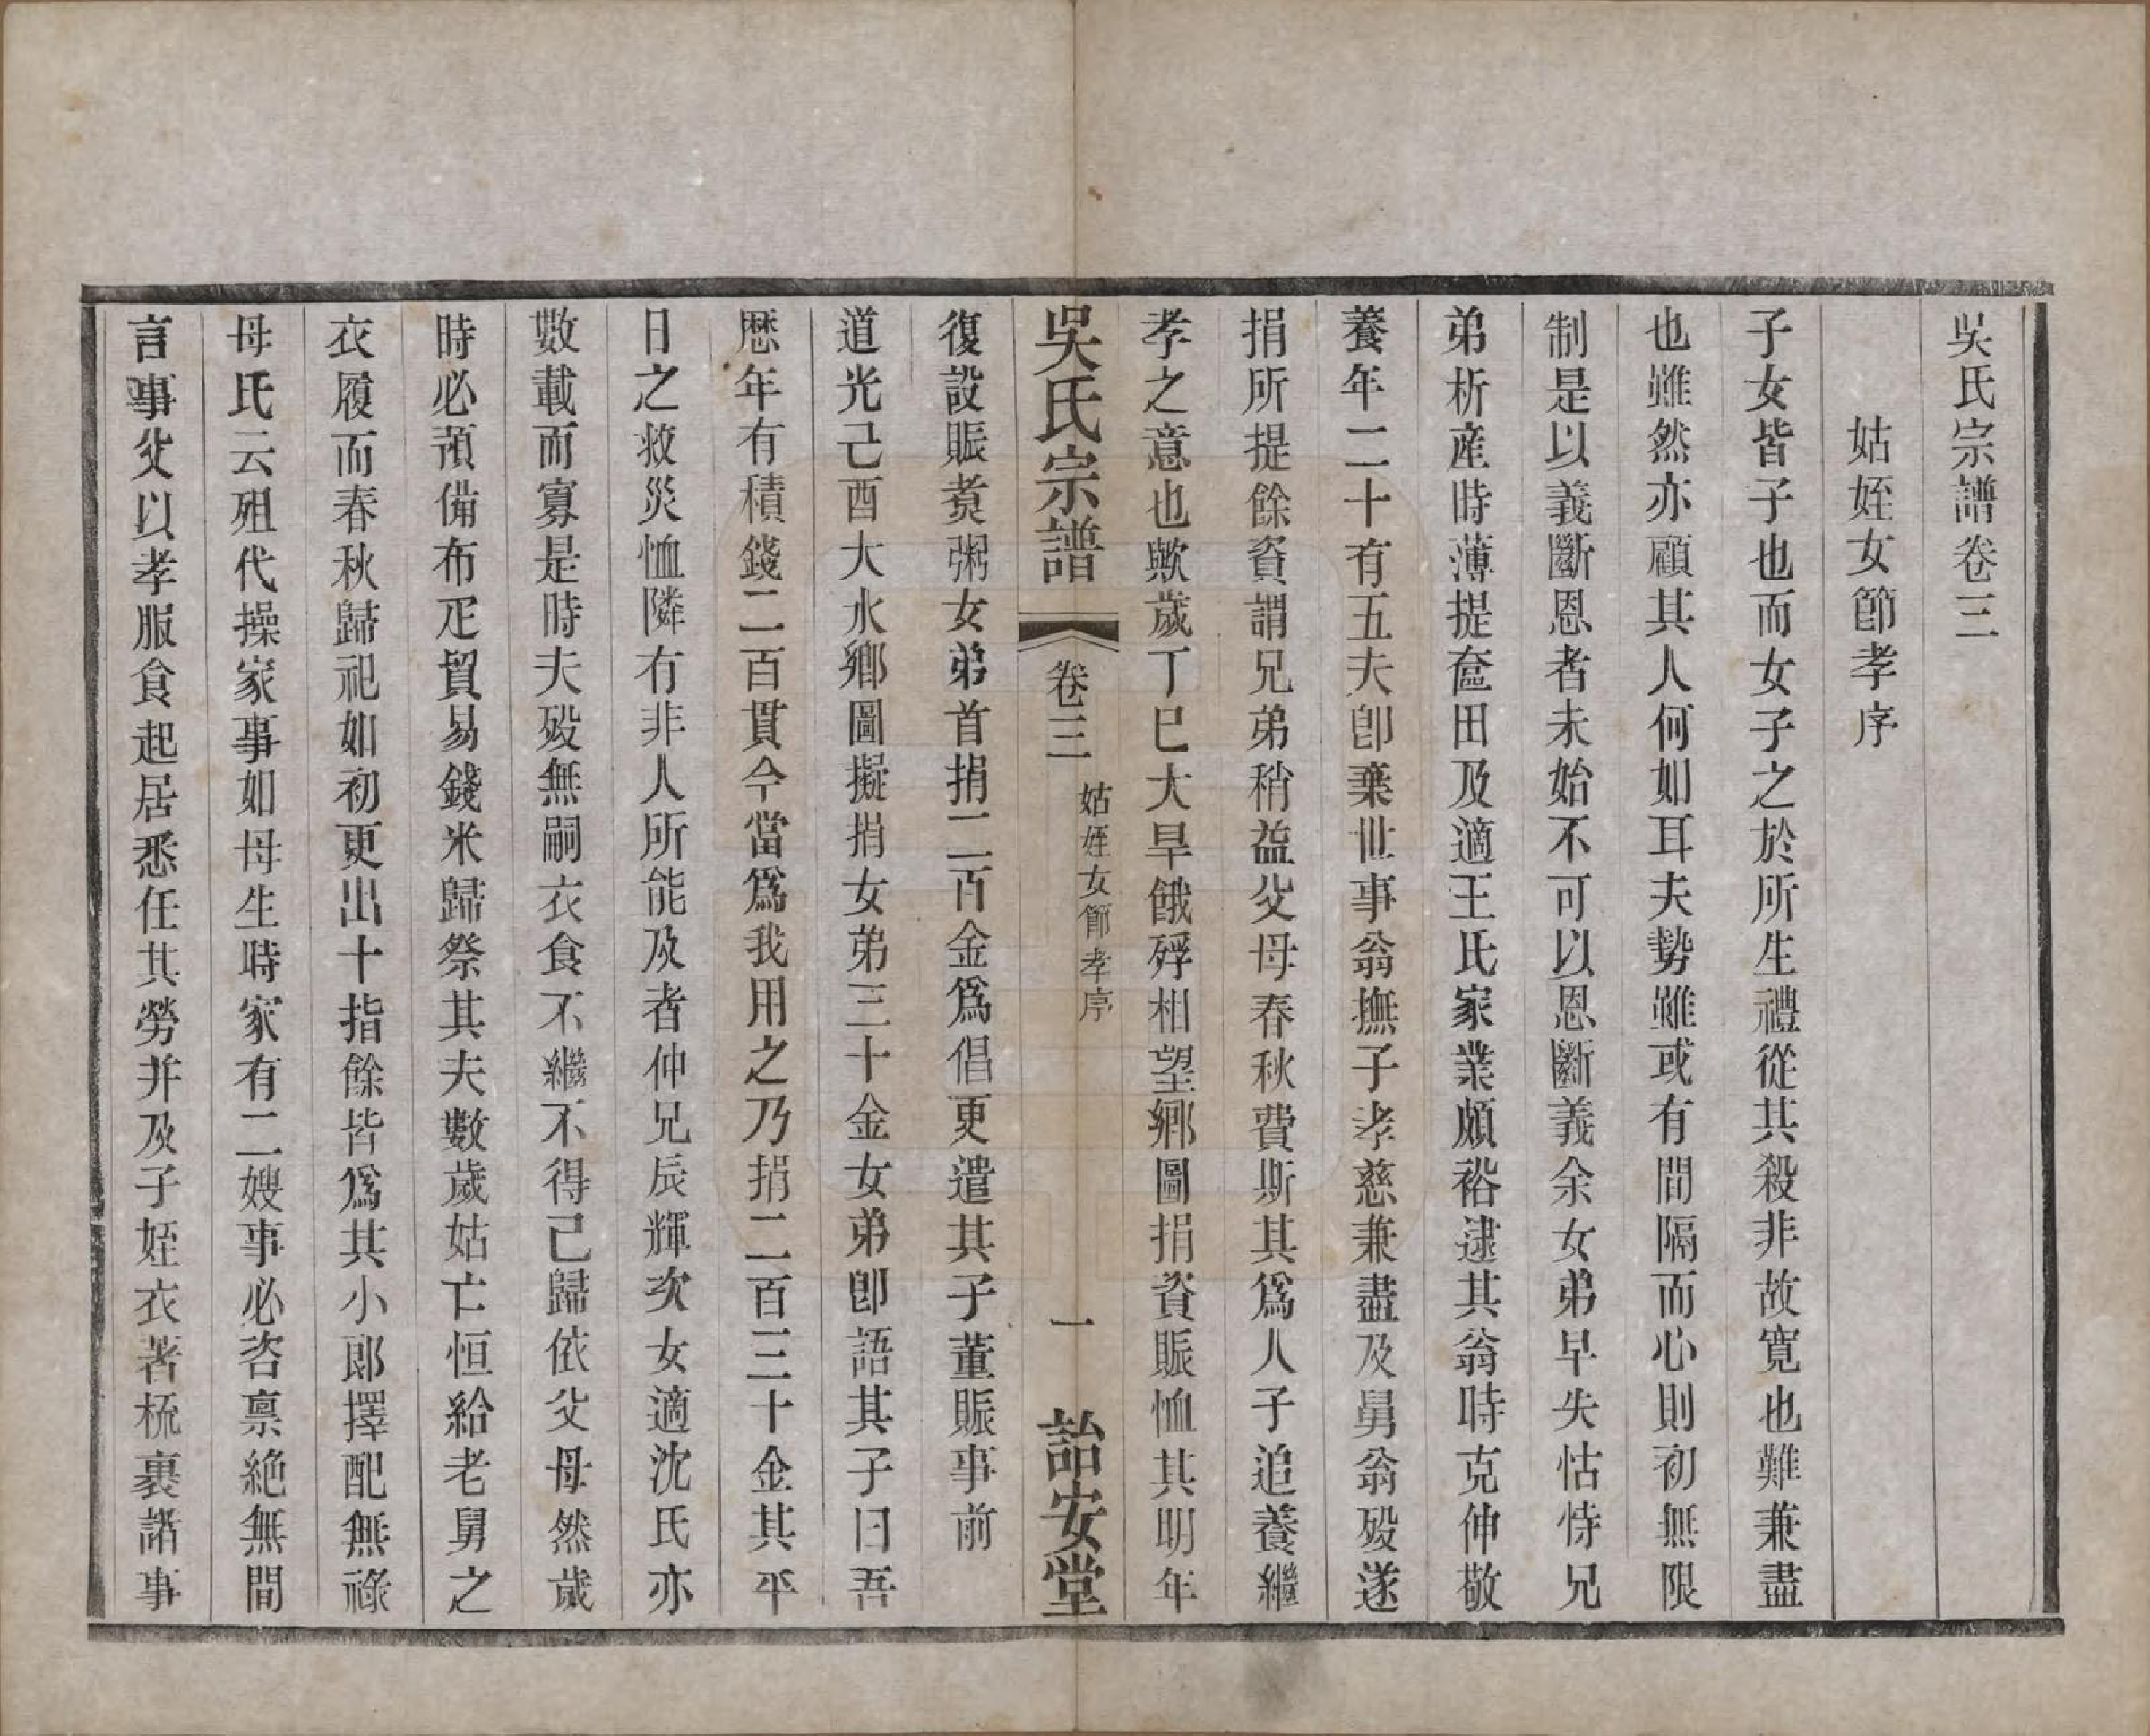 吳氏宗譜卷三
姑姪女節孝序
子女皆子也而女子之於所生禮從其殺非故寬也難兼盡
也雖然亦顧其人何如耳夫勢雖或有間隔而心則初無限
制是以義斷恩者未始不可以恩斷義余女弟早失怙恃兄
弟析産時薄提奩田及適王氏家業頗裕逮其翁時克仲敬
養年二十有五夫卽棄世事翁撫子孝慈兼盡及舅翁歿遂
捐所提餘資謂兄弟稍益父母春秋費斯其爲人子追養繼
孝之意也歟歲丁巳大旱餓殍相望鄉圖捐資賑恤其明年
吳氏宗譜 卷三 姑姪女節孝序 一 詒安堂
復設賑煑粥女弟首捐二百金爲倡更遣其子董賑事前
道光己酉大水鄉圖擬捐女弟三十金女弟卽語其子曰吾
歷年有積錢二百貫今當爲我用之乃捐二百三十金其平
日之救災恤隣有非人所能及者仲兄辰輝次女適沈氏亦
數載而寡是時夫歿無嗣衣食不繼不得已歸依父母然歲
時必預備布疋貿易錢米歸祭其夫數歲姑亡恒給老舅之
衣履而春秋歸祀如初更出十指餘皆爲其小郎擇配無祿
母氏云殂代操家事如母生時家有二嫂事必咨禀絶無間
言事父以孝服食起居悉任其勞并及子姪衣著梳裹諸事